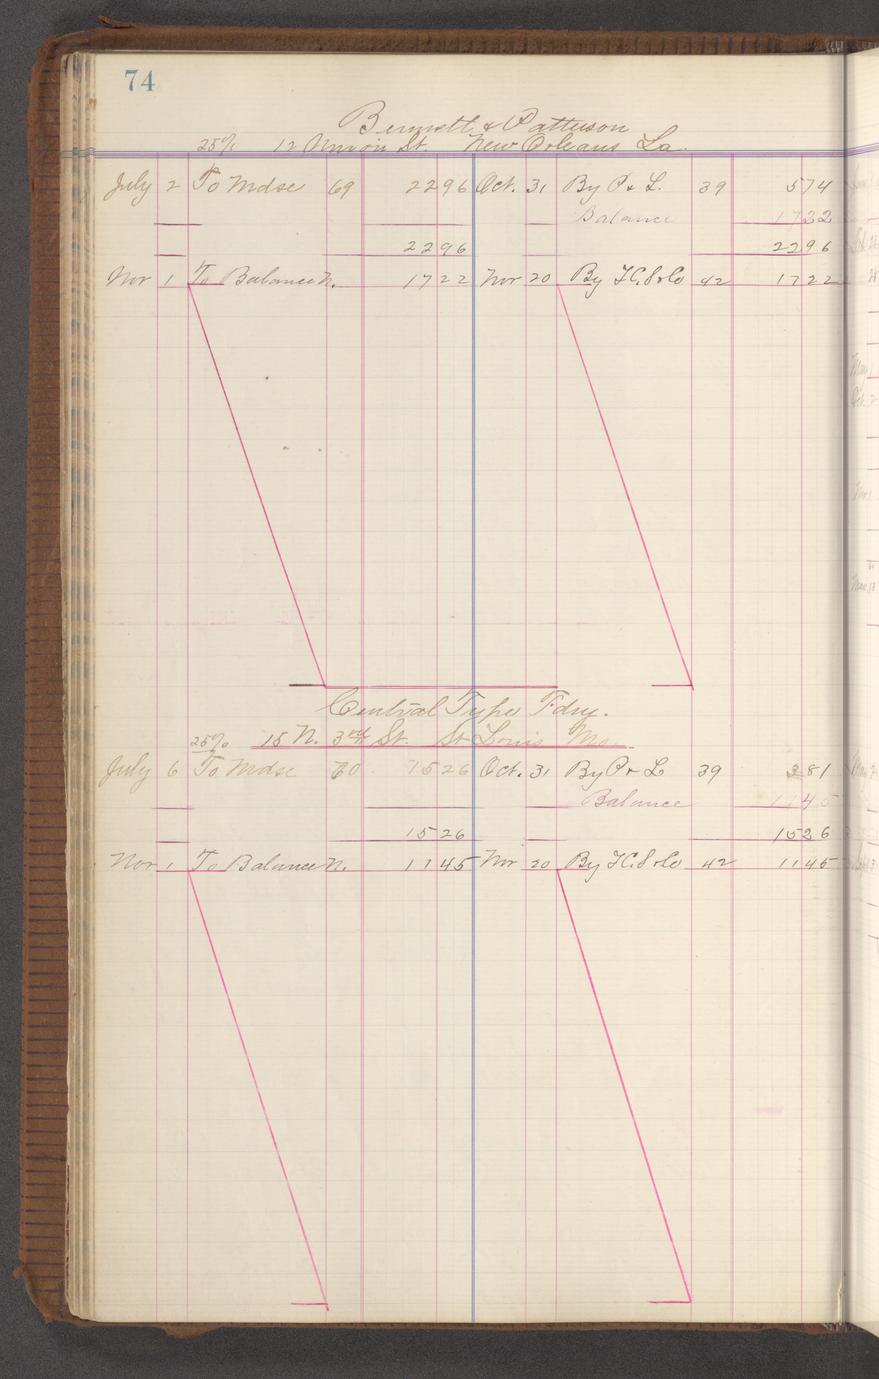 74
Bennett & Patterson
25% 12 Union St. New Orleans La.
July 2 To Mdse 69 2296 Oct. 31 By P & L. 39 574
Balance 1722
2296 2296
Nov 1 To Balance N. 1722 Nov 20 By 42 1722
Central Type Fdry.
25% 15 N. 3rd St. St Louis Mo.
July 6 To Mdse 1526 Oct. 31 By P & L 39 381
Balance 1145
1526 1526
Nov 1 To Balance N. 1145 Nov 20 By 42 1145